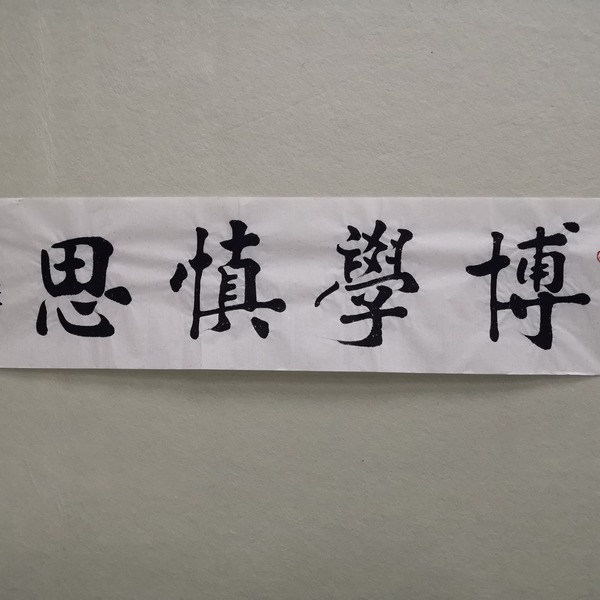 博學慎思